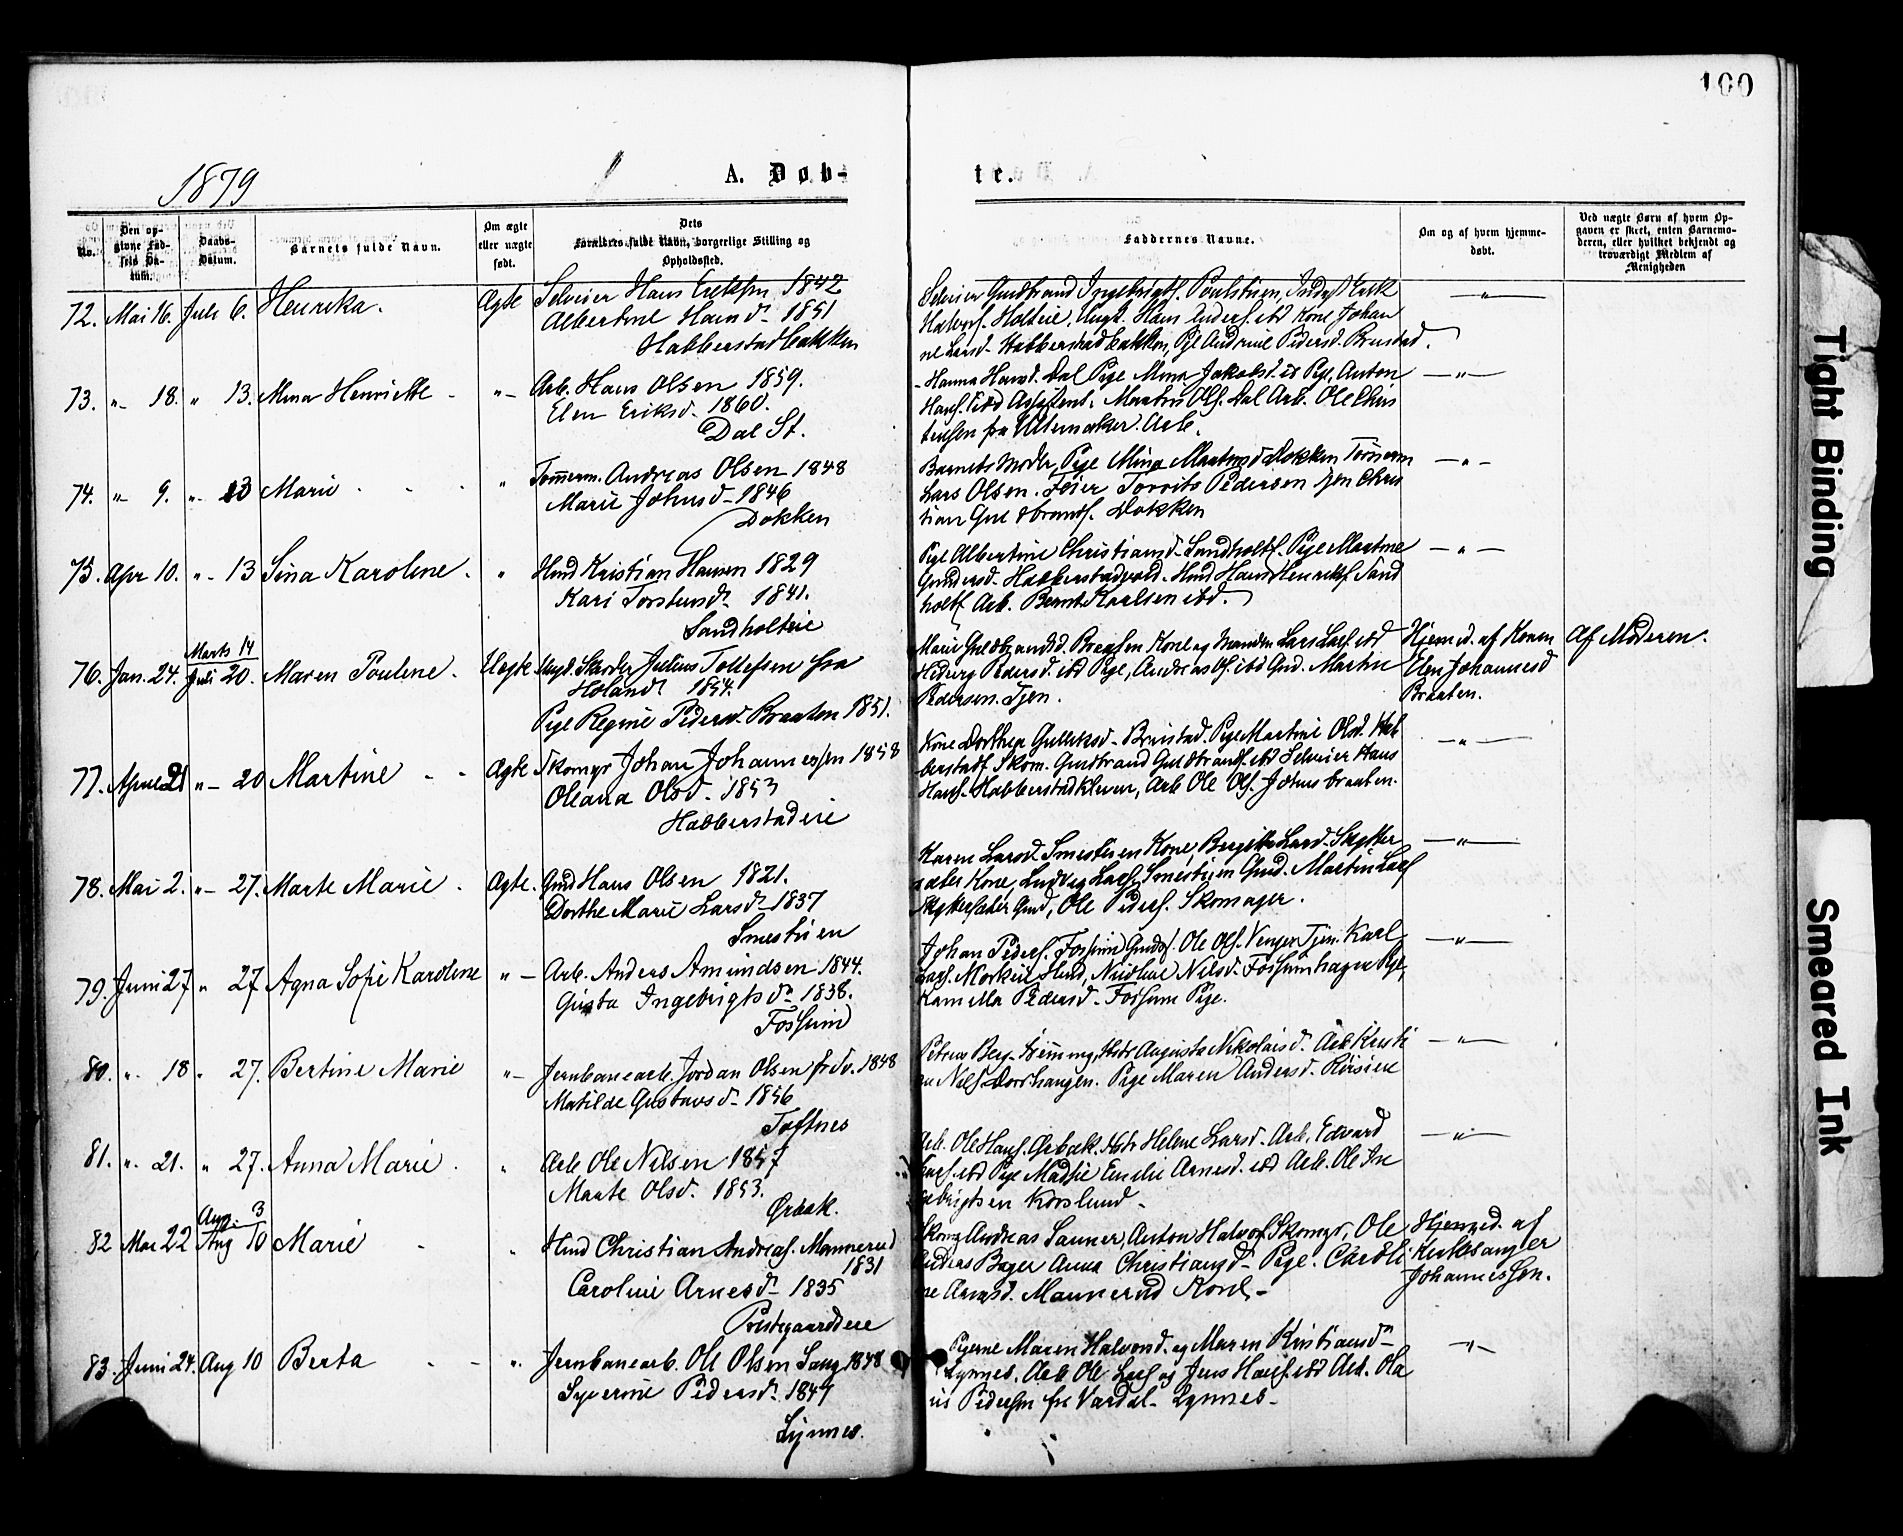 100
1879
A. Døb-
te.
No.
Den op-
givne Fød-
sels Da-
tum.
Daabs-
Datum.
Barnets fulde Navn.
Om ægte
eller uægte
født.
Dets
Forældres fulde Navn, borgerlige Stilling og
Opholdssted.
Faddernes Navne.
Om og af hvem hjemme-
døbt.
Ved uægte Børn af hvem Op-
gaven er skeet, enten Barnemo-
deren, eller hvilket bekjendt og
troværdigt Medlem af
Menigheden
72. Mai 16. Juli 6. Henrika. Ægte Selveier Hans Eriksen 1842
Albertine Hansd. 1851
Habberstadbakken
Selveier Gudbrand Ingebrigts. Poulstuen,
Halvors. Holteie, Ungk. Hans Anders. ibd Kone, Johan
ne Larsd. Habberstadbakken, Pge Andrine Pedersd. Brustad.
73. " 18. " 13. Mina Henriette " Arb. Hans Olsen 1859.
Elen Eriksd. 1860.
Dal St.
Hanna Hansd. Dal Pige Mina Jakobsd. Pge, Anton
Hans. ibd Assistent. Martin Ols. Dal Arb. Ole Chris
tensen fra Ullensaker. Arb.
74. " 9. " 13 Marie " Tømmerm. Andreas Olsen 1848
Marie Johnsd. 1846
Dokken
Barnets Moder, Pige Mina Dokken
Lars Olsen. Pedersen Tjen Chris
tian Guldbrands. Dokken
75. Apr 10. " 13 Sina Karoline. " Hmd Kristian Hansen 1829
Kari Torstensd. 1841.
Sandholteie
Pige Albertine Christiansd. Sandholt. Pige Martine
Gundersd. Habberstadvold. Hmd Hans Henriks. Sand
holt Arb. Bernt Karlsen ibd.
76. Jan. 24. Marts 14
Juli 20. Maren Poulene. Uægte Ungk. Skræder Julius Tollefsen fra
Høland 1854.
Pige Regine Pedersd. Braaten 1851.
Marie Guldbrandsd. Braaten Kone og Manden Lars Lars. ibd
Hedvig Pedersd. ibd Pige, Andreas Ols. ibd Gmd. Martin
Pedersen. Tjen.
Hjemmed. af Konen
Elen Johannesd
Braaten.
Af Moderen.
77. April 21 " 20 Martine Ægte Skomgr Johan Johannessen 1858
Oleana Olsd. 1853
Habberstadeie
Kone Dorthea Gulliksd. Brustad. Pige Martine Olsd. Hab
berstad. Skom. Gudbrand Guldbrands. ibd Selveier Hans
Hans. Habberstadkleven, Arb Ole Ols. Johnsbraaten.
78. Mai 2. " 27. Marte Marie. Ægte. Gmd Hans Olsen 1821.
Dorthe Marie Larsd. 1837
Smestuen
Karen Larsd. Smestuen Kone, Bergitte Larsd. Skytter
sæter Kone, Ludvig Lars. Smestuen Gmd. Martin Lars
Skyttersæter Gmd, Ole Peders. Skomager.
79. Juni 27 " 27. Agna Sofie Karoline " Arb. Anders Amundsen 1844.
Gusta Ingebrigtsd. 1838.
Fossum
Johan Peders. Fossum Gmds. Ole Ols. Venger Tjen. Karl
Lars. Morkeie Hmd, Nicoline Nilsd. Fossumhagen Pge,
Pedersd. Fossum Pige.
80. " 18 " 27. Bertine Marie " Jernbanearb. Jordan Olsen fr Sv. 1848
Matilde Gustavsd. 1856
Toftnes
Petrus Berg. Hstr Augusta Nikolaisd. Arb Kristi
an Nils. Dorrhaugen. Pige Maren Andersd.
81. " 21. " 27. Anna Marie. " Arb Ole Nilsen 1857
Marte Olsd. 1853.
Ørbak.
Arb. Ole Hans. Ørbak. Hstr Helene Larsd. Arb. Edvard
Lars. ibd Pige Mathie Emilie Arnesd. ibd Arb. Ole In
gebrigtsen Korslund.
82 Mai 22 Aug. 3
Aug 10 Marie " Hmd Christian Andreas. Mannerud
1831
Caroline Arnesd. 1835
Prestegaardeie
Skomg Andreas Sanner, Anton Halvors. Skomgr, Ole
Andreas Bager Anna Christiansd. Pige. Caroli
ne Arnesd. Mannerud Kone.
Hjemmed. af
Kirkesanger
Johannessen.
83. Juni 24. Aug 10 Berta " Jernbanearb. Ole Olsen Sang 1848
Syverine Pedersd. 1847
Lynnes.
Pigerne Maren Halvorsd. og Maren Kristiansd.
Lynnes. Arb Ole Lars. og Jens Hans. ibd Arb. Ola
us Pedersen fra Vardal. Lynnes.
Tight Binding
Smeared Ink